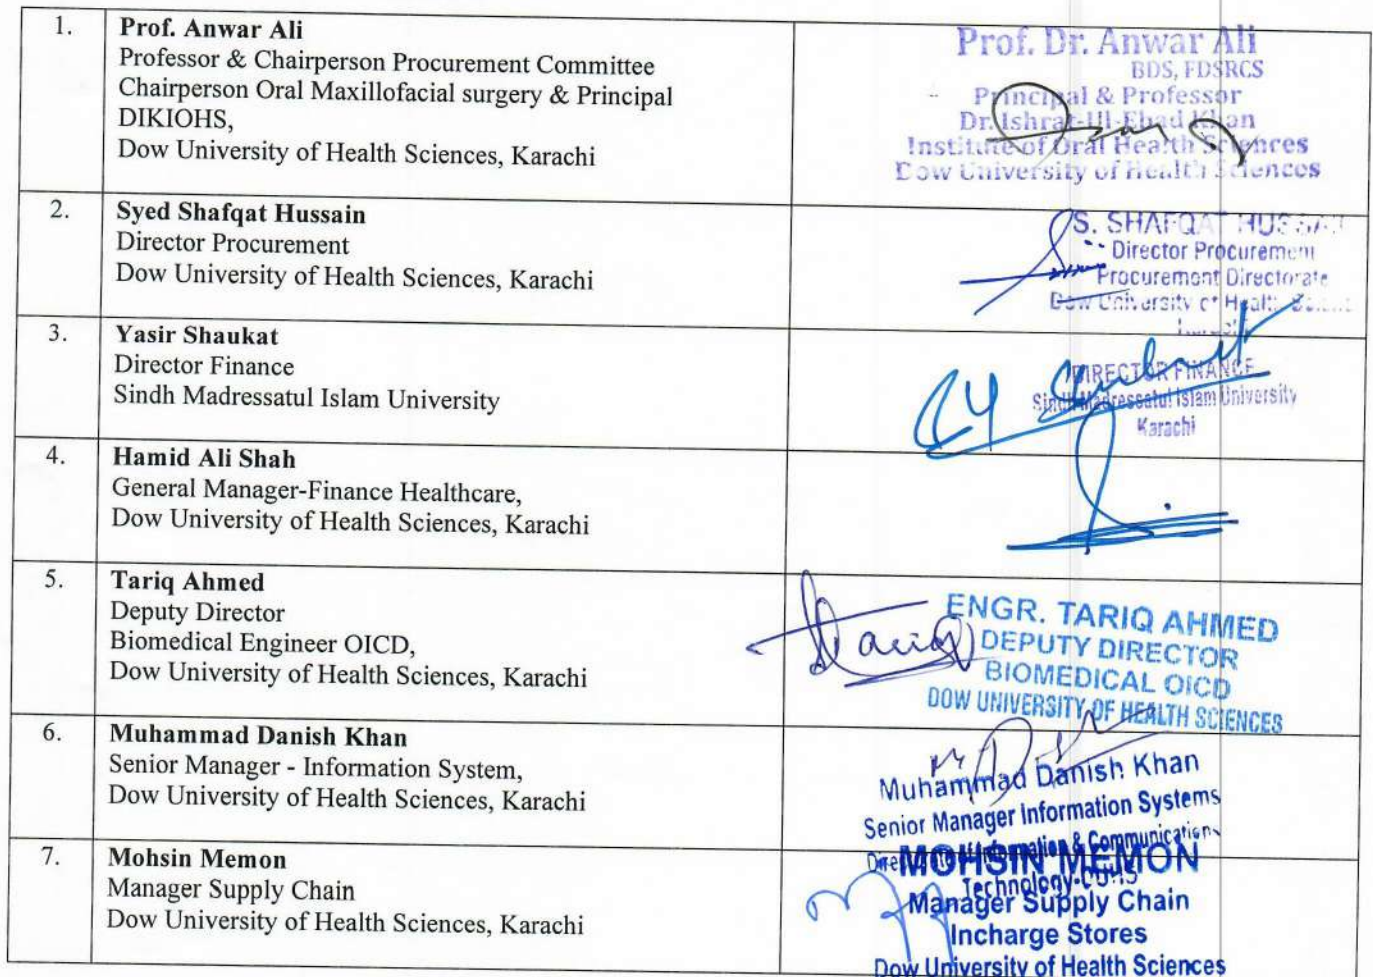 1.
Prof. Anwar Ali
Professor & Chairperson Procurement Committee
Chairperson Oral Maxillofacial surgery & Principal
DIKIOHS,
Dow University of Health Sciences, Karachi
Prof. Dr. Anwar Ali
BDS, FDSRCS
Principal & Professor
Dr. Ishrat-Ul-Ebad Khan
Institute of Oral Health Sciences
Dow University of Health Sciences
2.
Syed Shafqat Hussain
Director Procurement
Dow University of Health Sciences, Karachi
S. SHAFQAT
Director Procurement
Procurement Directorate
Dow University of Health
3.
Yasir Shaukat
Director Finance
Sindh Madressatul Islam University
DIRECTOR FINANCE
Sindh Madressatul Islam University
Karachi
4.
Hamid Ali Shah
General Manager-Finance Healthcare,
Dow University of Health Sciences, Karachi
5.
Tariq Ahmed
Deputy Director
Biomedical Engineer OICD,
Dow University of Health Sciences, Karachi
Tariq
ENGR. TARIQ AHMED
DEPUTY DIRECTOR
BIOMEDICAL OICD
DOW UNIVERSITY OF HEALTH SCIENCES
6.
Muhammad Danish Khan
Senior Manager - Information System,
Dow University of Health Sciences, Karachi
Muhammad Danish Khan
Senior Manager Information Systems
Information & Communication
Technology-DUHS
7.
Mohsin Memon
Manager Supply Chain
Dow University of Health Sciences, Karachi
MOHSIN MEMON
Manager Supply Chain
Incharge Stores
Dow University of Health Sciences